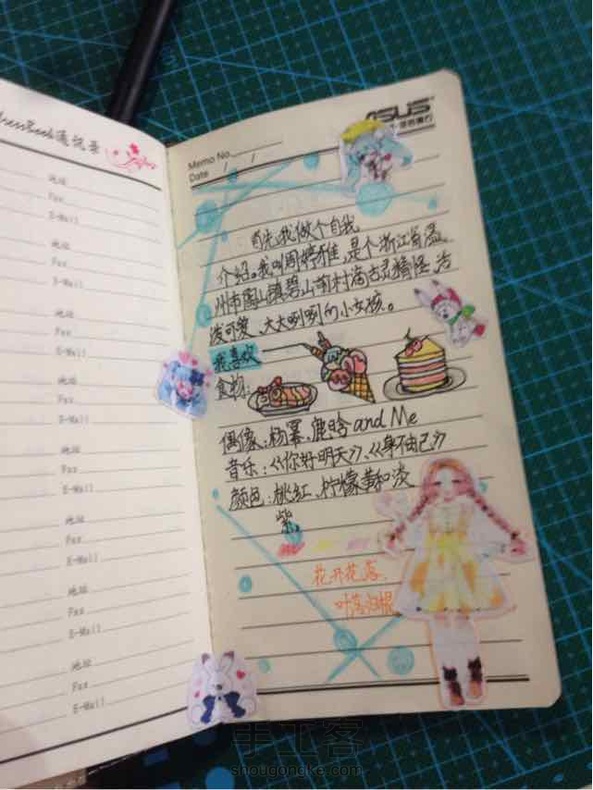 通讯录
地址
Fax
E-Mail
地址
Fax
E-Mail
地址
Fax
E-Mail
地址
Fax
E-Mail
地址
Fax
E-Mail
地址
Fax
E-Mail
地址
Fax
E-Mail
地址
Fax
E-Mail
ASUS
Memo No.
Date / /
首先,我做个自我
介绍。我叫周婷雅,是个浙江省温
州市 山镇碧山 村 古灵精怪、活
泼可爱、大大咧咧的小女孩。
我喜欢
食物:
偶像:杨幂、鹿晗 and Me
音乐:《你好明天》、《身不由己》
颜色:桃红、柠檬黄和淡
紫。
花开花落,
叶落归根
手工客
shougongke.com